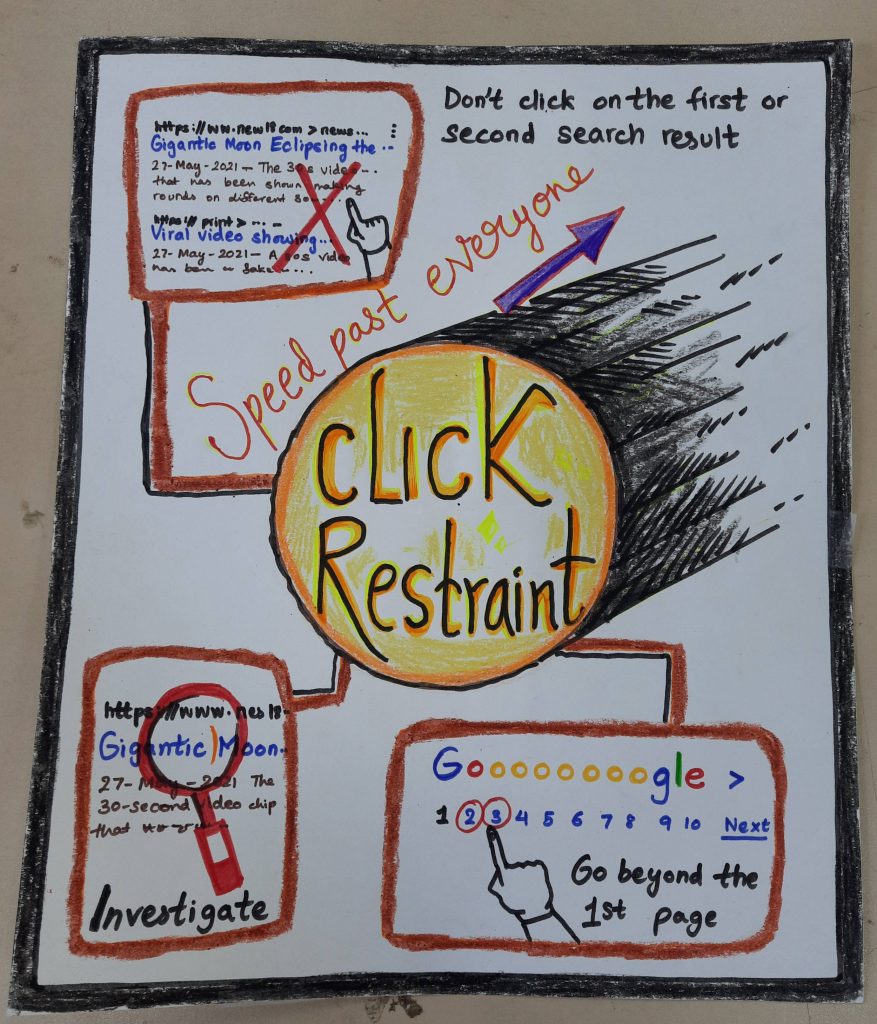 Don't click on the first or
second search result
https://ww.new18com > news...
Gigantic Moon Eclipsing the ...
27-May-2021 — The 30s video...
that has been shown making
rounds on different so.....
https:// print > ... ..
Viral video showing...
27-May-2021— A 30s video
has been a fake.....
Speed past everyone
CLICK
Restraint
https://www.nes18-
Gigantic Moon..
27-May-2021 The
30-second video chip
that
Investigate
Gooooooooogle >
1 2 3 4 5 6 7 8 9 10 Next
Go beyond the
1st page